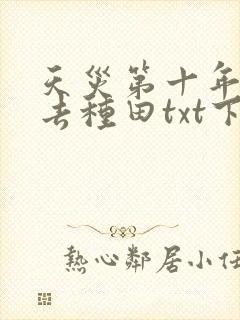 天災第十年
去種田txt下
熱心鄰居小任